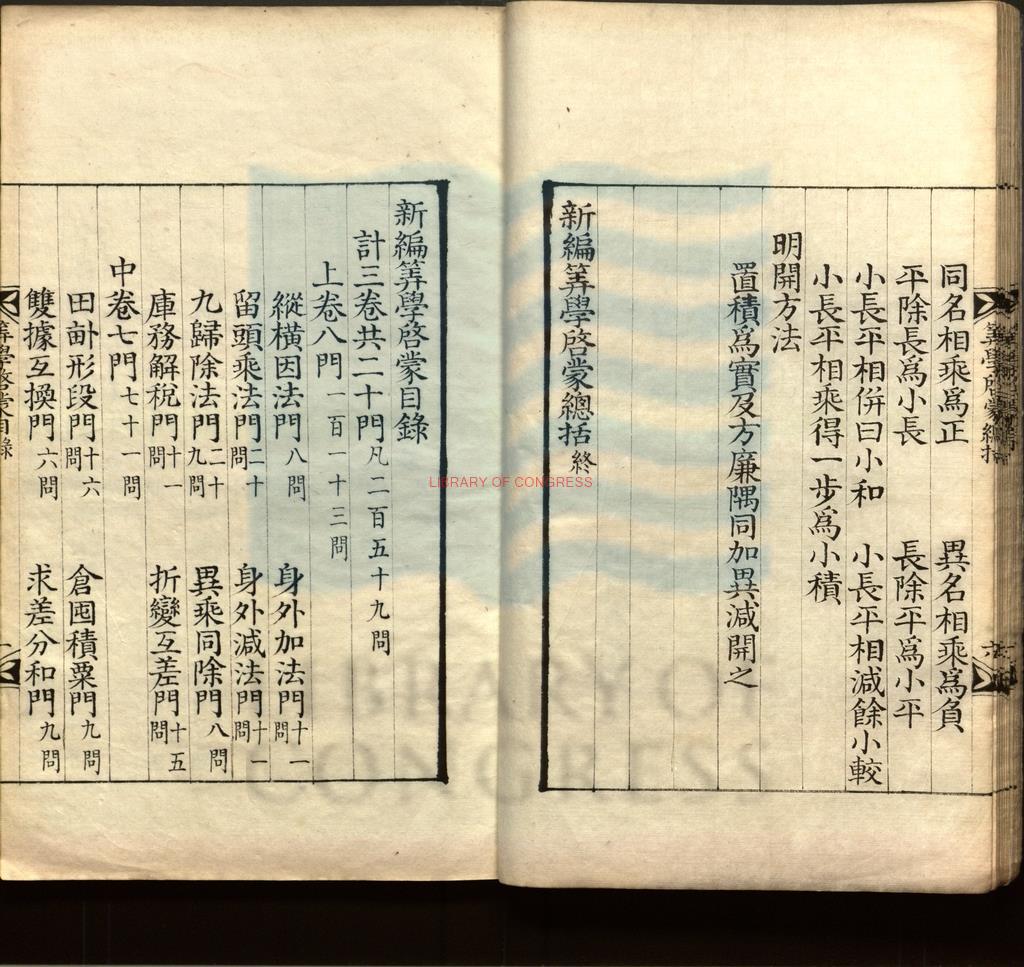 同名相乘爲正 異名相乘爲負
平除長爲小長 長除平爲小平
小長平相併曰小和 小長平相減餘小較
小長平相乘得一步爲小積
明開方法
置積爲實及方廉隅同加異減開之
新編筭學啓蒙總括 終
新編筭學啓蒙目錄
計三卷共二十門 凡二百五十九問
上卷八門 一百一十三問
縱横因法門 八問 身外加法門 十一問
留頭乘法門 二十問 身外減法門 十一問
九歸除法門 二十九問 異乘同除門 八問
庫務解稅門 十一問 折變互差門 十五問
中卷七門 七十一問
田畒形段門 十六問 倉囤積粟門 九問
雙據互換門 六問 求差分和門 九問
筭學啓蒙目錄
一
LIBRARY OF CONGRESS